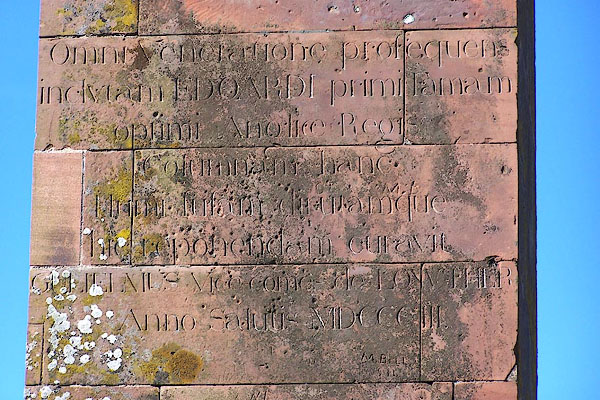 Omni veneratione prosequens
inclytam EDOARDI primi famam
optimi Angliæ Regis
Columnam hanc
Humi fusam dirutamque
hic reponendam curavit
GULIELMUS Vice-comes de LOWTHER
Anno Salutis MDCCCIII